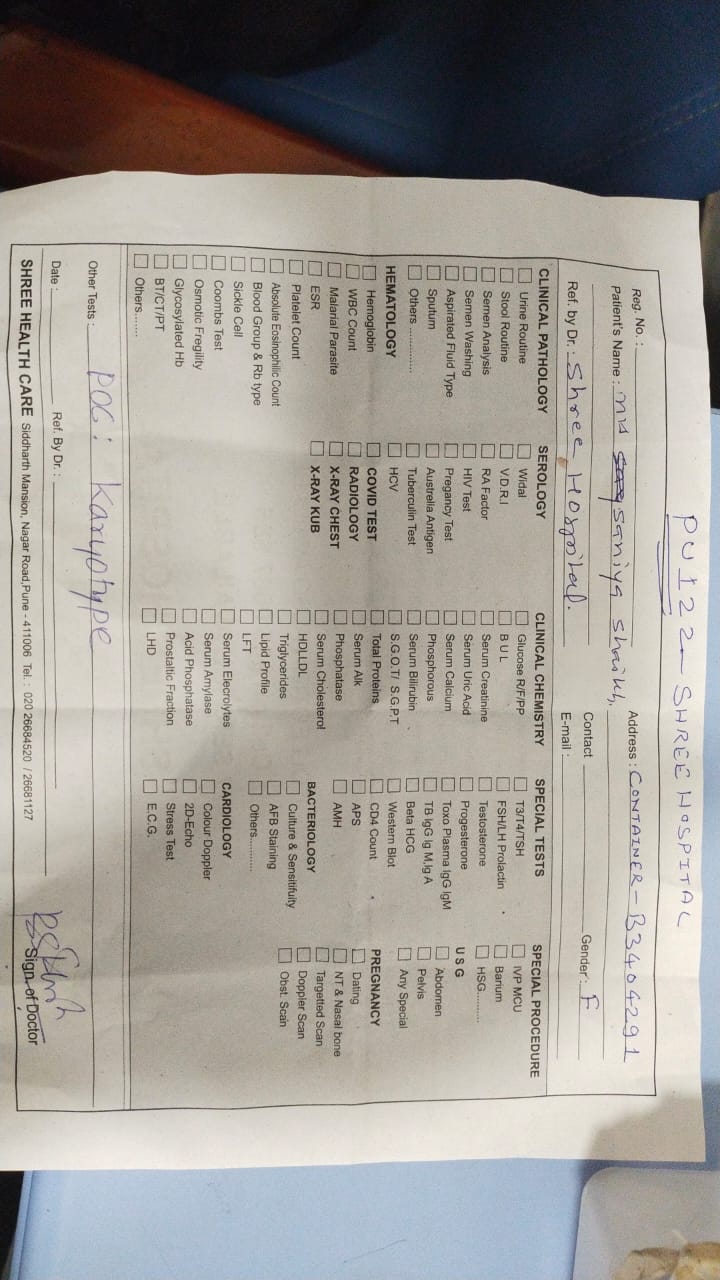 PU122 - SHREE HOSPITAL
Reg. No. :
Patient's Name : saniya Shaikh, Address : CONTAINER - B3404291
Contact Gender : F
Ref. by Dr. : Shree Hospital. E-mail :
CLINICAL PATHOLOGY
Urine Routine
Stool Routine
Semen Analysis
Semen Washing
Aspirated Fluid Type
Sputum
Others ..............
HEMATOLOGY
Hemoglobin
WBC Count
Malarial Parasite
ESR
Platelet Count
Absolute Eosinophilic Count
Blood Group & Rb type
Sickle Cell
Coombs Test
Osmotic Fregility
Glycosylated Hb
BT/CT/PT
Others........
SEROLOGY
Widal
V.D.R.I
RA Factor
HIV Test
Pregancy Test
Australia Antigen
Tuberculin Test
HCV
COVID TEST
RADIOLOGY
X-RAY CHEST
X-RAY KUB
CLINICAL CHEMISTRY
Glucose R/F/PP
B U L
Serum Creatinine
Serum Uric Acid
Serum Calcium
Phosphorous
Serum Bilirubin
S.G.O.T/ S.G.P.T
Total Proteins
Serum Alk
Phosphatase
Serum Cholesterol
HDLLDL
Triglycerides
Lipid Profile
LFT
Serum Elecrolytes
Serum Amylase
Acid Phosphatase
Prostaltic Fraction
LHD
SPECIAL TESTS
T3/T4/TSH
FSH/LH Prolactin
Testosterone
Progesterone
Toxo Plasma IgG IgM
TB IgG Ig M,Ig A
Beta HCG
Western Blot
CD4 Count
APS
AMH
BACTERIOLOGY
Culture & Sensitifuity
AFB Staining
Others............
CARDIOLOGY
Colour Doppler
2D-Echo
Stress Test
E.C.G.
SPECIAL PROCEDURE
IVP MCU
Barium
HSG..........
U S G
Abdomen
Pelvis
Any Special
PREGNANCY
Dating
NT & Nasal bone
Targetted Scan
Doppler Scan
Obst. Scain
Other Tests : POC : karyotype
Date : Ref. By Dr. : Sign. of Doctor
SHREE HEALTH CARE Siddharth Mansion, Nagar Road,Pune - 411006 Tel. : 020 26684520 / 26681127